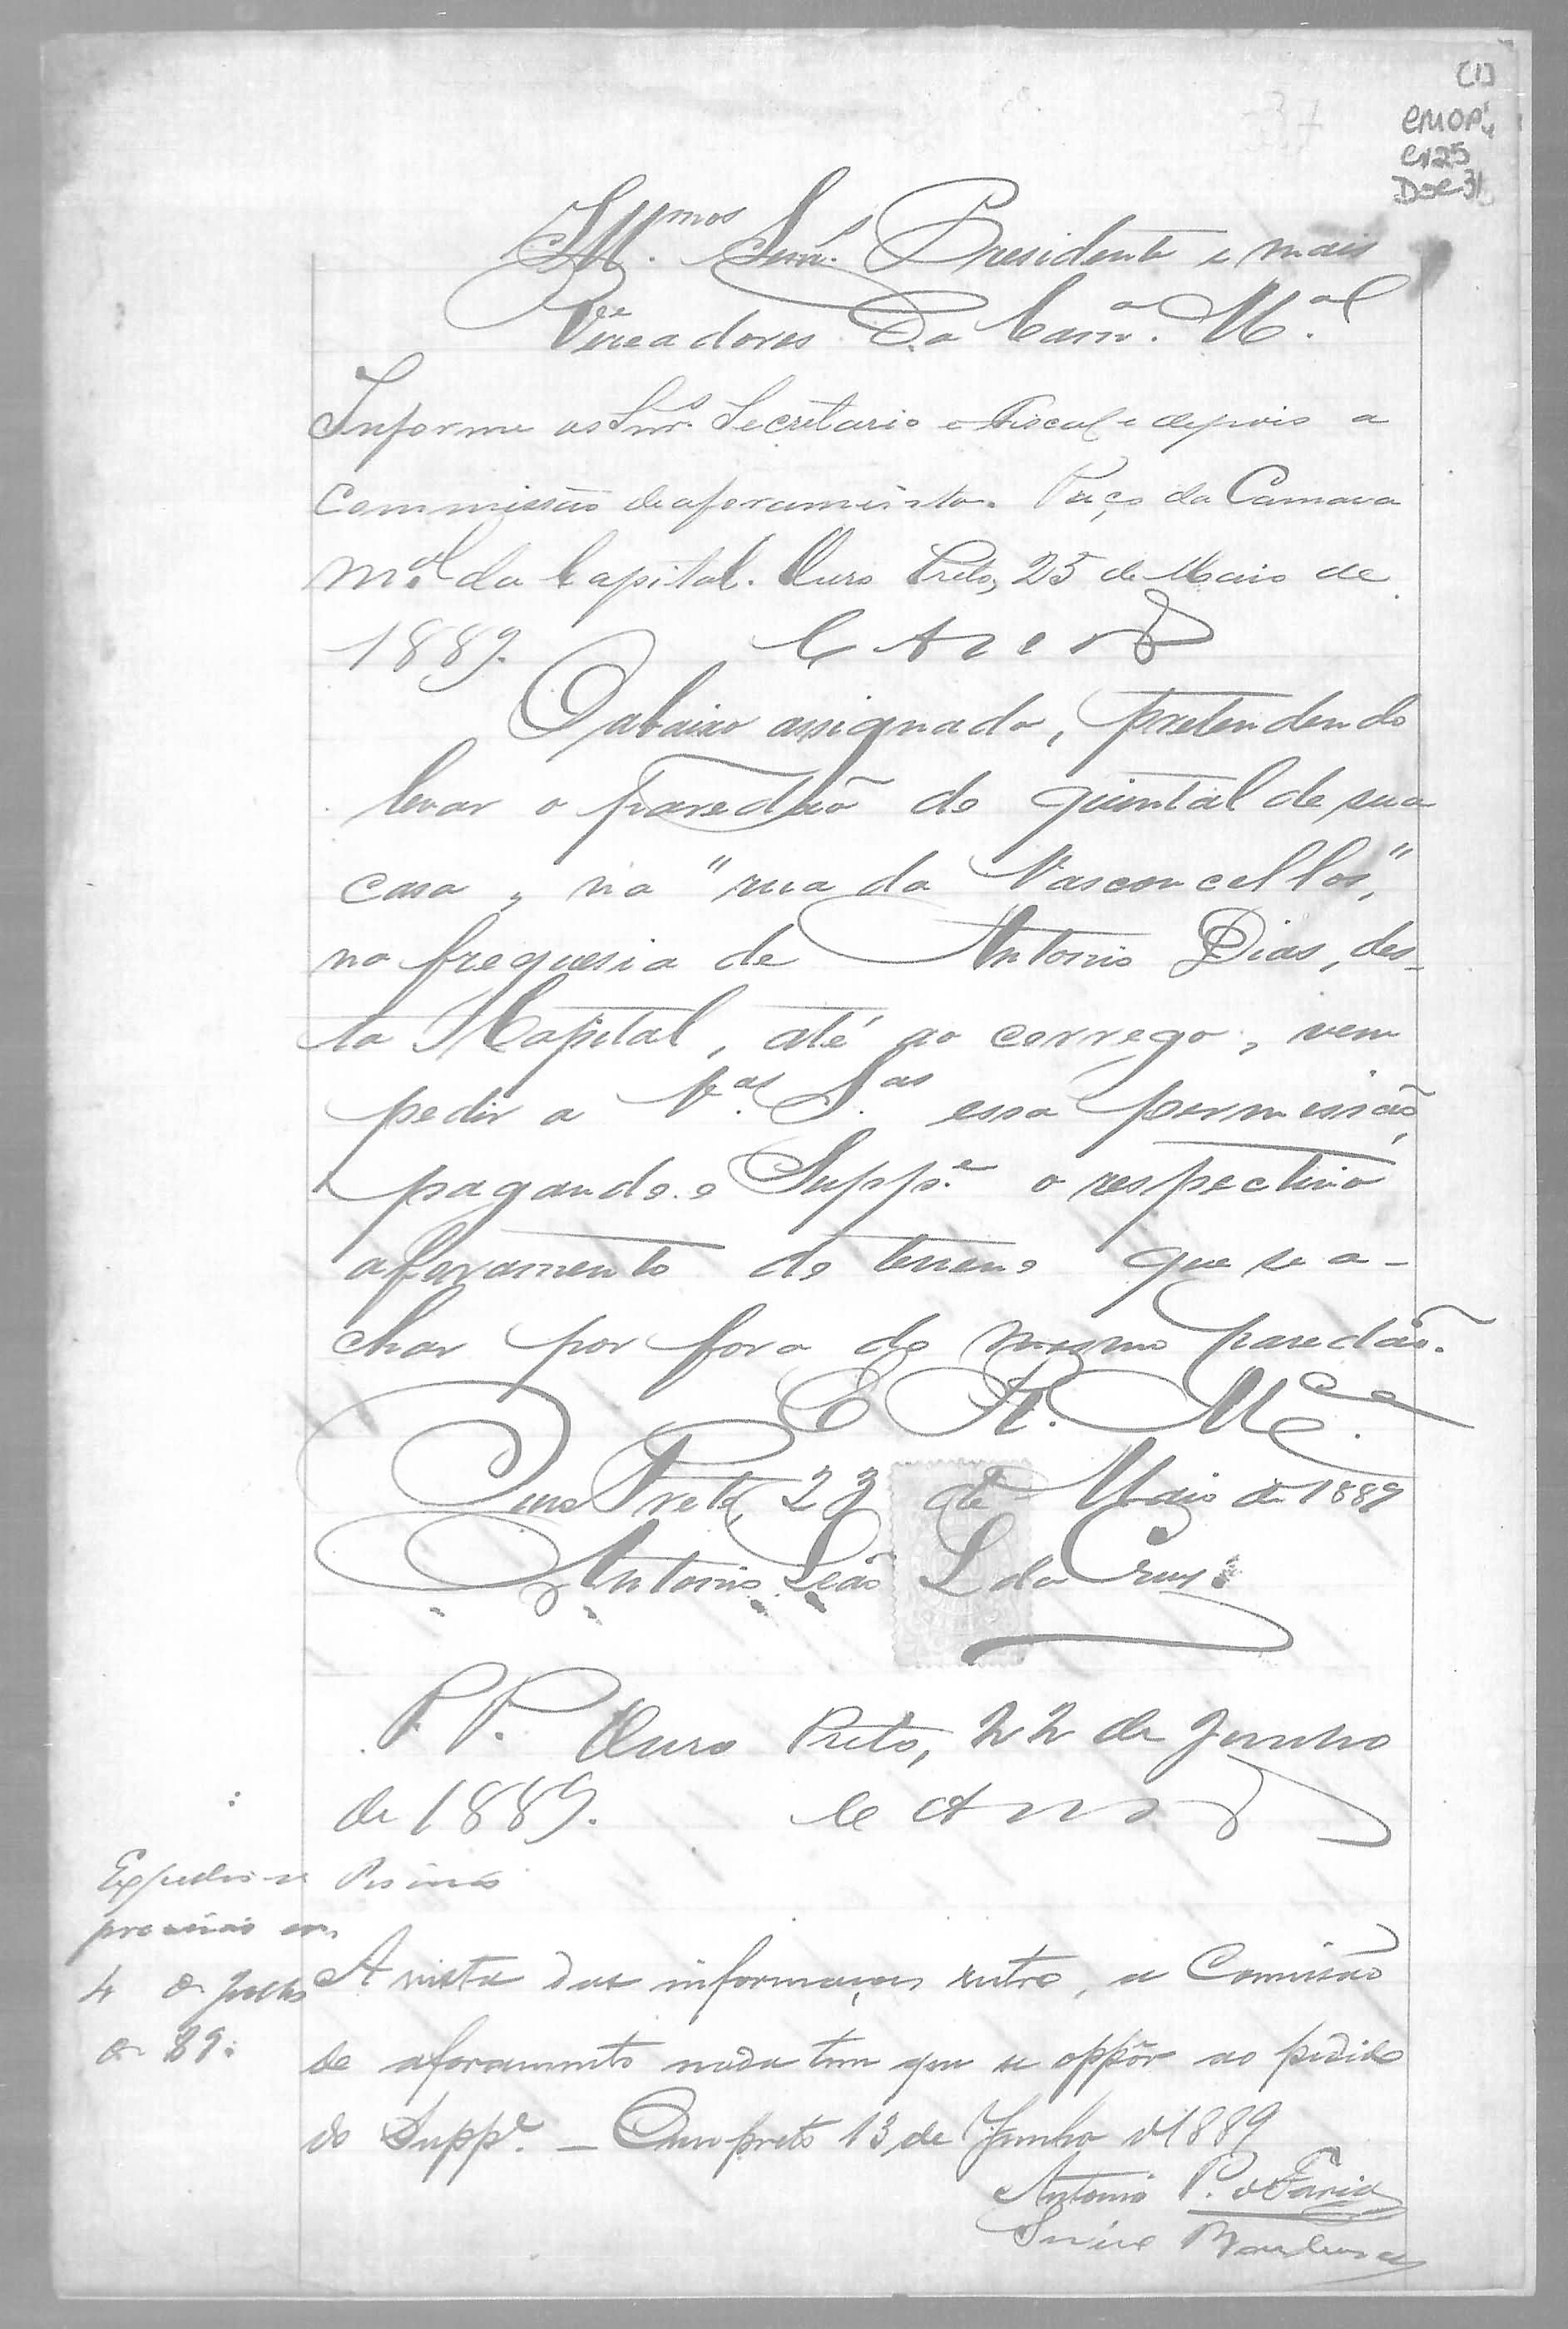 (1)
CMOP
Cx25
Doc 31
Ill.mos Snrs. Presidente e mais
Vereadores Da Camª. M.al
Informe os Snrs. Secretario e Fiscal e depois a
Commissão de aforamento. Paço da Camara
M.al da Capital. Ouro Preto, 25 de Maio de
1889.
O abaixo assignado, pretendendo
levar o paredão do quintal de sua
casa, na "rua do Vasconcellos",
na freguesia de Antonio Dias, des-
ta Capital, até ao corrego, vem
pedir a V.as S.as essa permissão,
pagando o Supp.e o respectivo
aforamento do terreno que se a-
char por fora do mesmo paredão.
E. R. M.ce
Ouro Preto, 23 de Maio de 1889
Antonio Leão L da Cruz
P. P. Ouro Preto, 22 de Junho
de 1889.
Expediu-se
provisão em
4 de Julho
de 89.
A vista das informações retro, a Comissão
de aforamento nada tem que se oppôr ao pedido
do Supp.e — Ouro preto 13 de Junho d 1889
Antonio P. d Faria